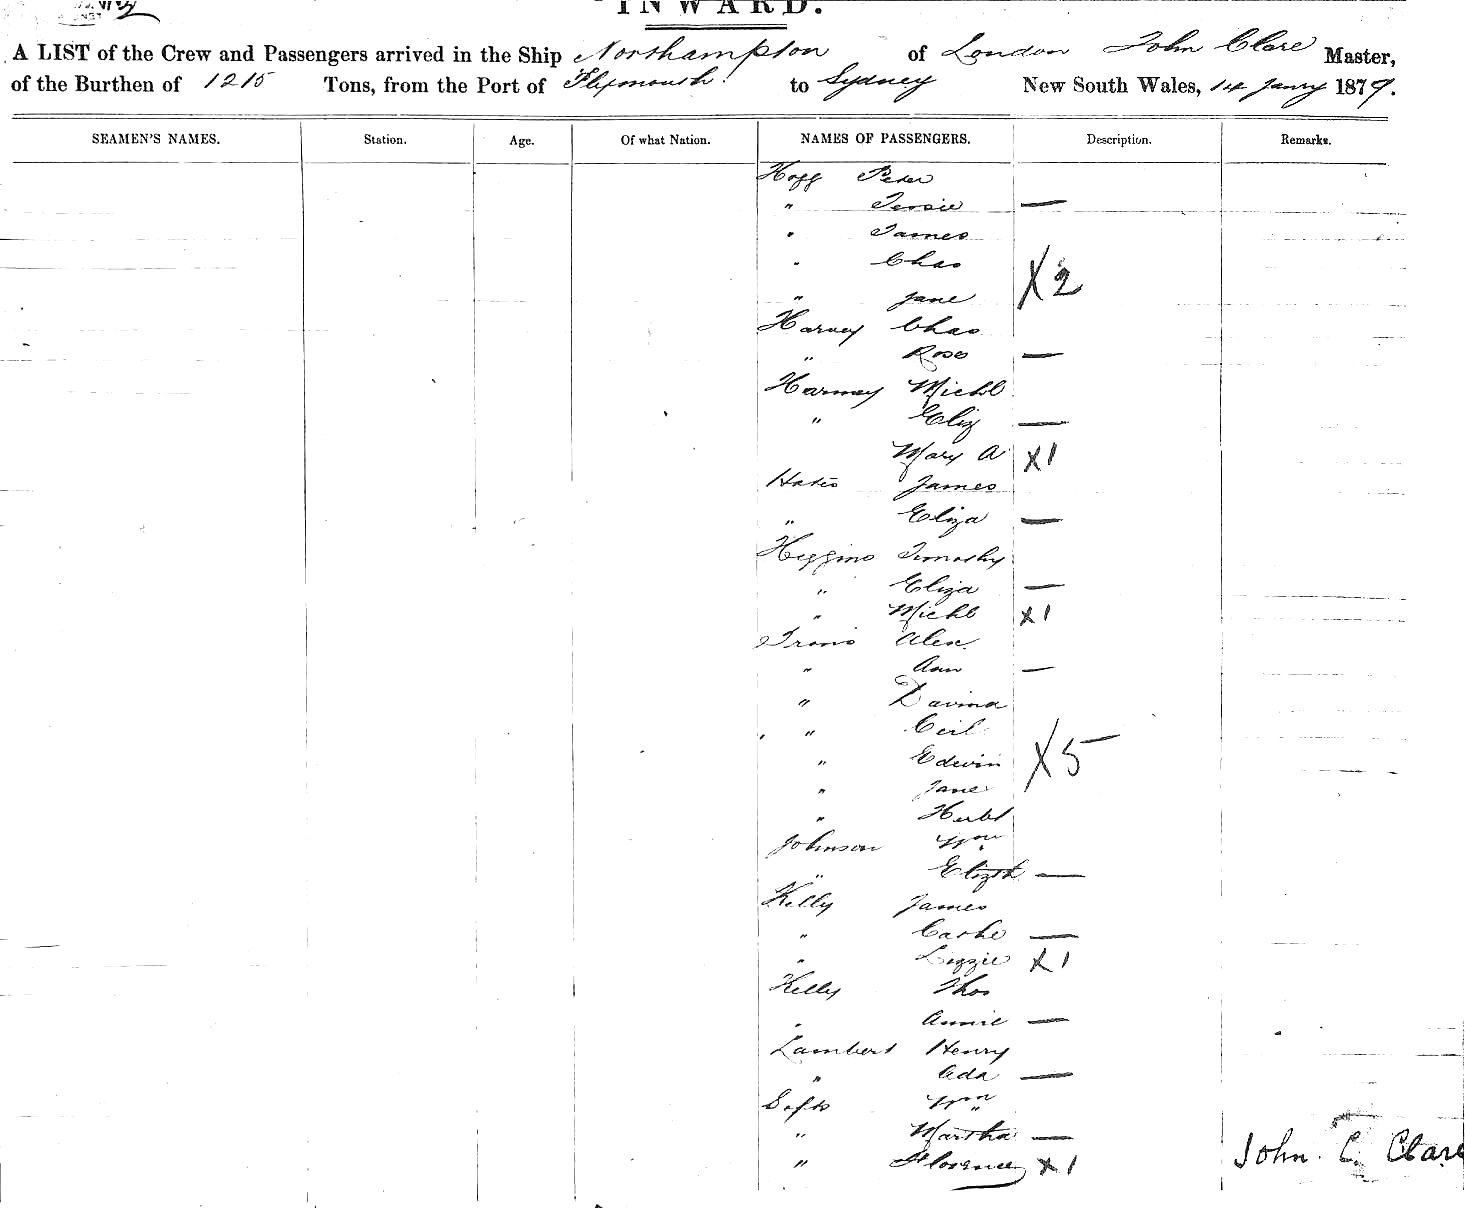 INWARD.
A LIST of the Crew and Passengers arrived in the Ship Northampton of London John Clare Master,
of the Burthen of 1215 Tons, from the Port of Plymouth to Sydney New South Wales, 14 Janry 1879.
SEAMEN'S NAMES. Station. Age. Of what Nation. NAMES OF PASSENGERS. Description. Remarks.
Hogg Peter
" Jessie —
" James
" Chas
" Jane X2
Harvey Chas
" Rose —
Harney Michl
" Eliz —
Mary A X1
James
" Eliza —
Higgins Timothy
" Eliza —
" Michl X1
Alex
" Ann —
" Davina
" Cecil
" Edwin X5
" Jane
" Herbt
Johnson Wm
" Elizth —
Kelly James
" —
" Lizzie X1
Kelly Thos
" Annie —
Lambert Henry
" Ada —
Wm
" Martha —
" Florence X1
John. C. Clare